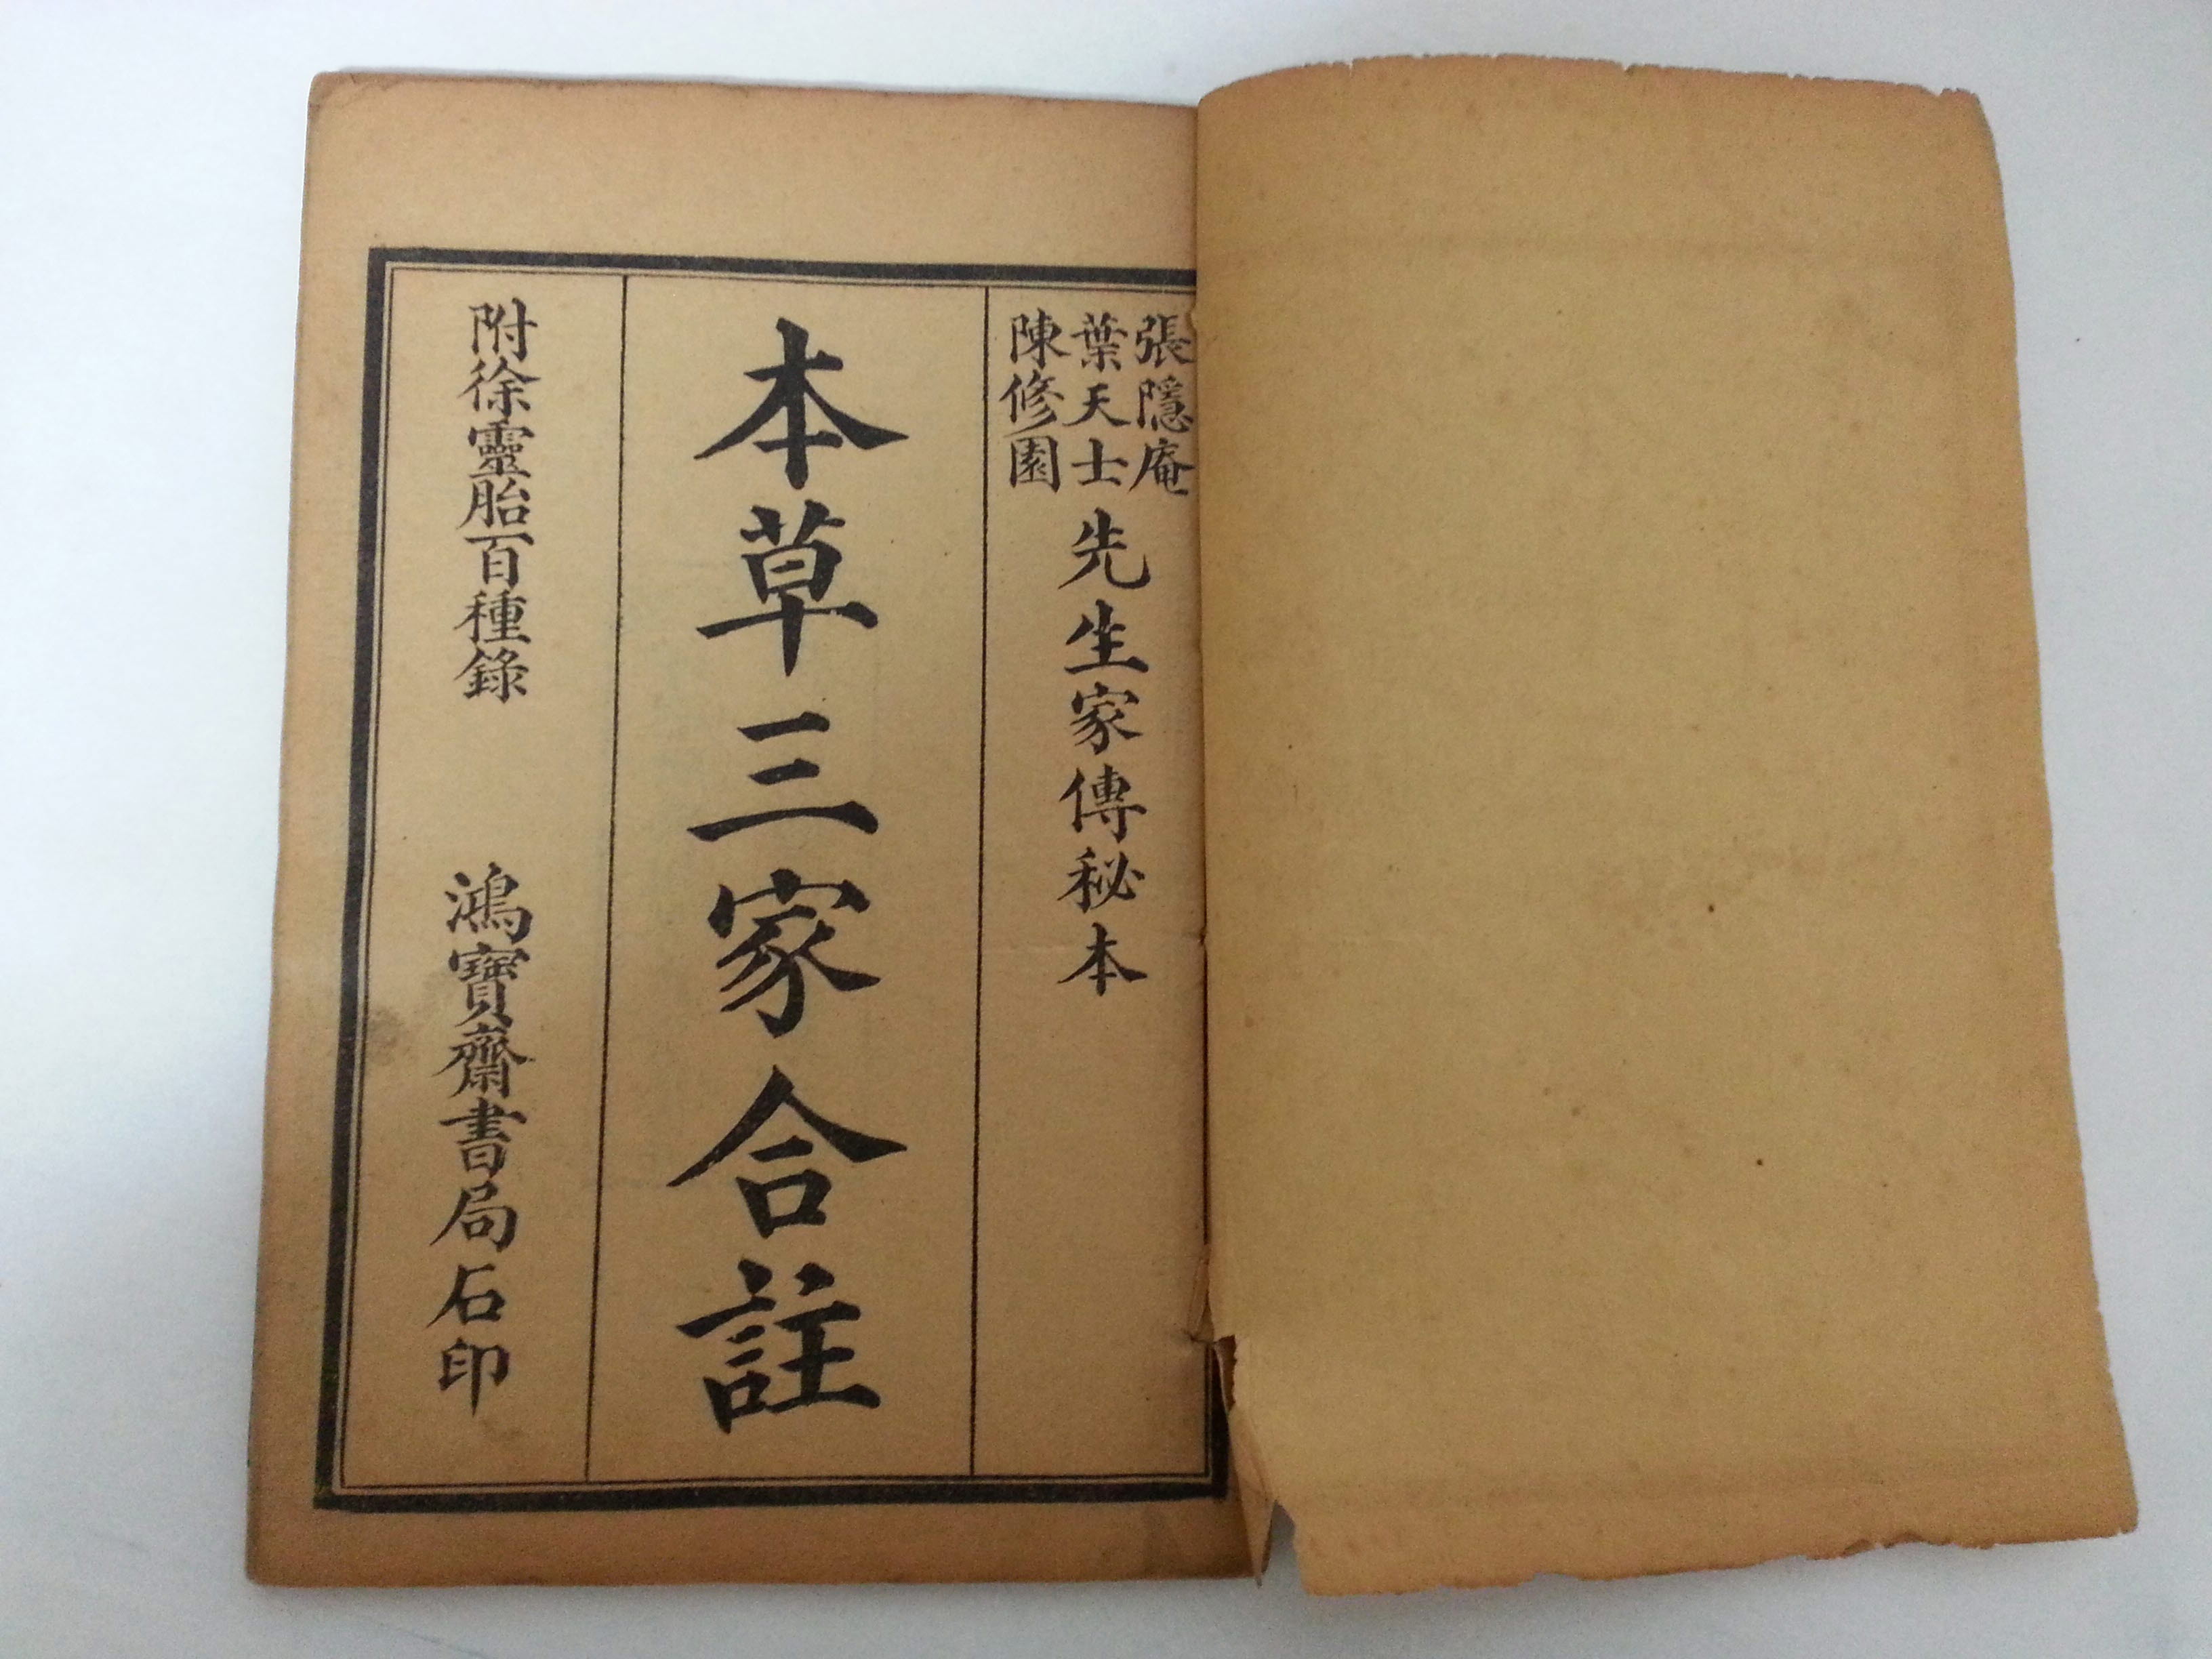 張隱庵
葉天士
陳修園
先生家傳秘本
本草三家合註
附徐靈胎百種錄
鴻寶齋書局石印